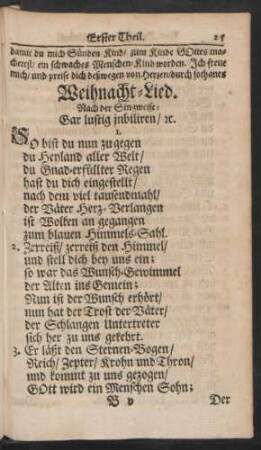 Erster Theil. 25
damit du mich Sünden Kind/ zum Kinde GOttes ma-
chetest/ ein schwaches Menschen-Kind worden. Jch freue
mich/ und preise dich deßwegen von Hertzen/durch sothanes
Weihnacht-Lied.
Nach der Singweise:
Gar lustig jubiliren/ ꝛc.
1.
SO bist du nun zugegen
du Heyland aller Welt/
du Gnad-erfüllter Regen
hast du dich eingestellt/
nach dem viel tausendmahl/
der Väter Hertz-Verlangen
ist Wolken an gegangen
zum blauen Himmels-Sahl.
2. Zerreiß/ zerreiß den Himmel/
und stell dich bey uns ein;
so war das Wunsch-Gewimmel
der Alten ins Gemein;
Nun ist der Wunsch erhört/
nun hat der Trost der Väter/
der Schlangen Untertreter
sich her zu uns gekehrt.
3. Er läßt den Sternen-Bogen/
Reich/ Zepter/ Krohn und Thron/
und kommt zu uns gezogen/
GOtt wird ein Menschen Sohn;
B v Der